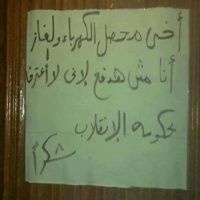 أخى محصل الكهرباء ولغاز
أنا مش هدفع لانى لا أعترف
بحكومة الإنقلاب
شكراً